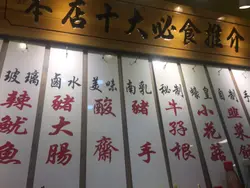 本店十大必食推介
玻璃辣魷魚
鹵水豬大腸
美味酸齋
南乳豬手
秘制牛孖根